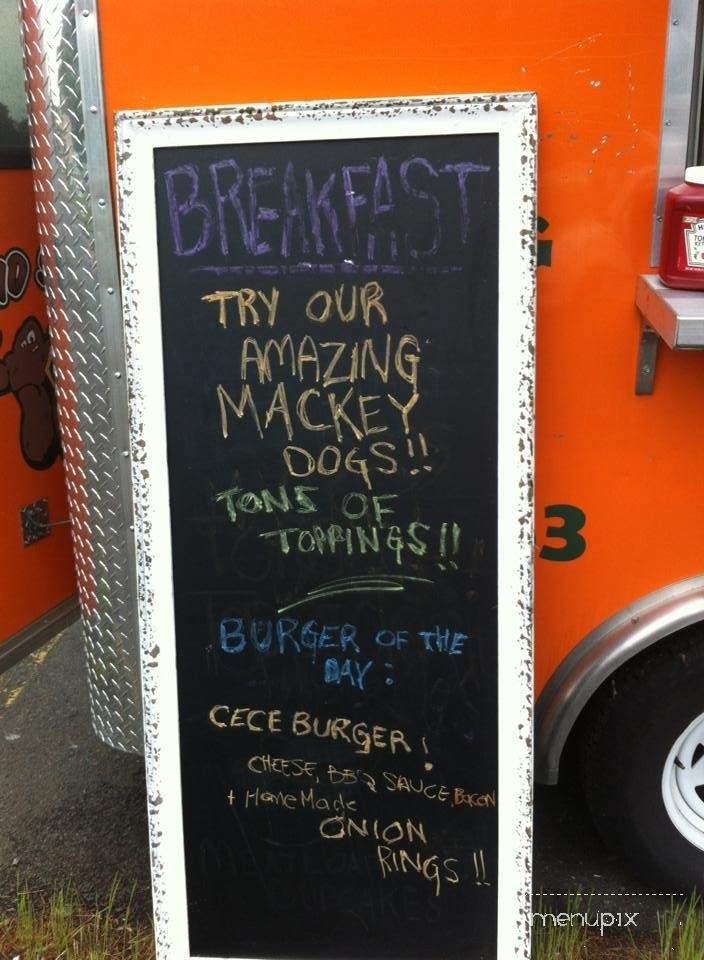 BREAKFAST
TRY OUR
AMAZING
MACKEY
DOGS!!
TONS OF
TOPPINGS!!
BURGER OF THE
DAY:
CECE BURGER!
CHEESE, BBQ SAUCE, BACON
+ HomeMade
ONION
RINGS!!
3
menupix